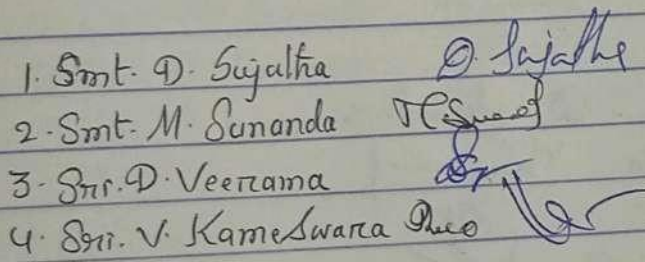 1. Smt. D. Sujatha D. Sujatha
2. Smt. M. Sunanda
3. Sri. D. Veerrama
4. Sri. V. Kameswara Rao